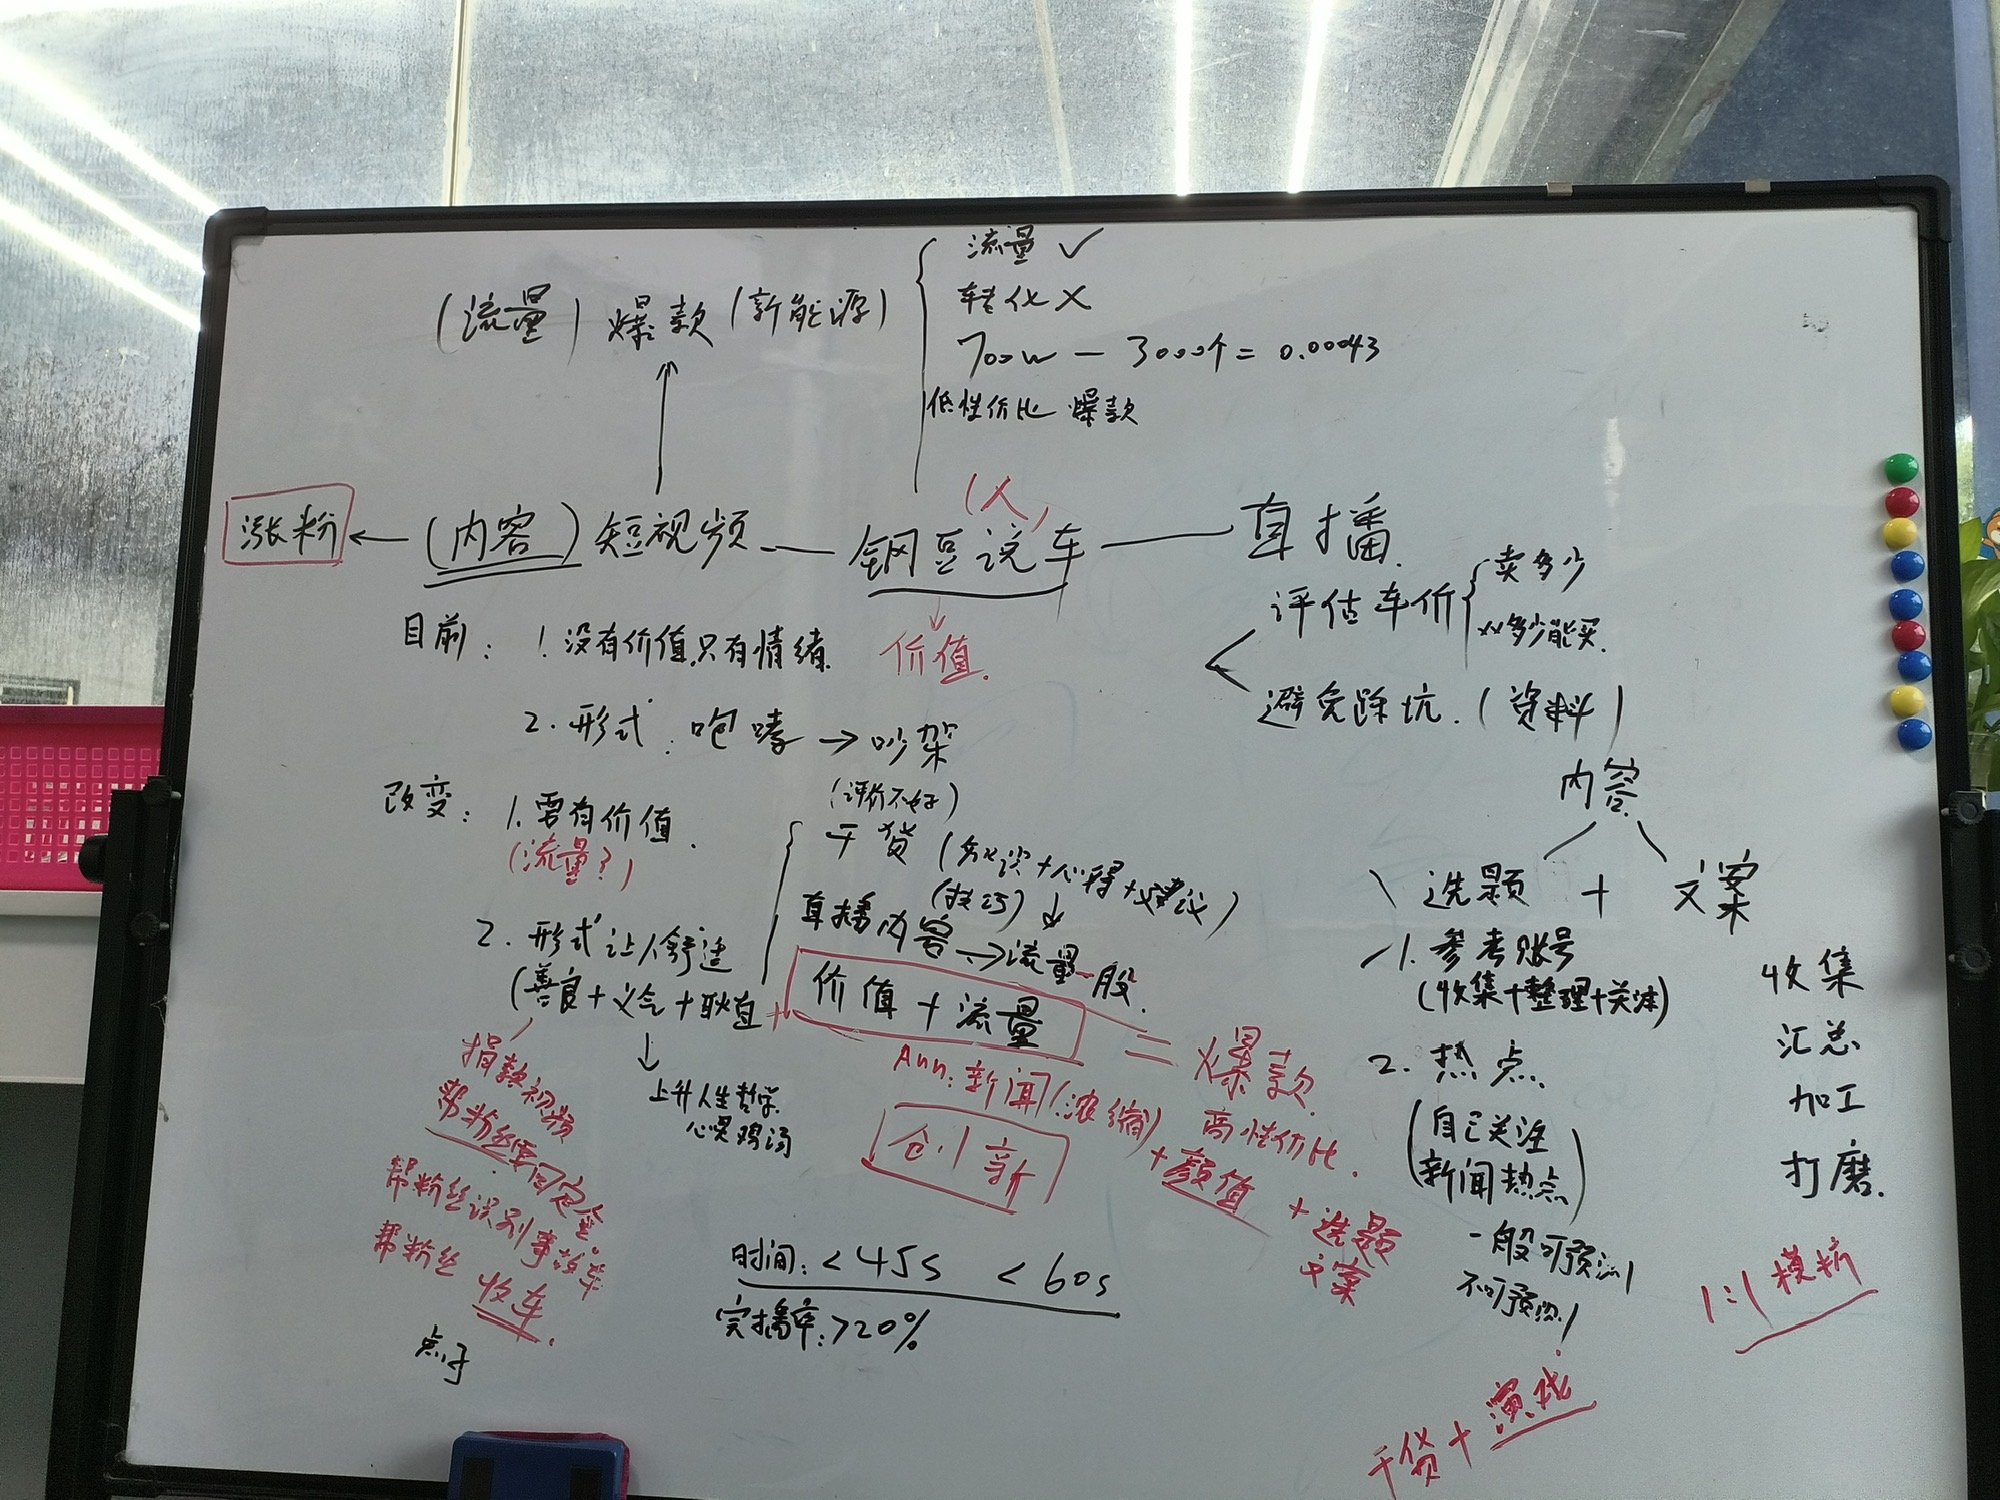 流量 ✓
(流量) 爆款 (新能源)
转化 X
700w — 3000个 = 0.00043
低性价比 爆款
(人)
涨粉 ← (内容) 短视频 — 钢豆说车 — 直播.
评估车价
卖多少
多少能买.
目前: 1. 没有价值,只有情绪.
价值.
2. 形式: 咆哮 → 吵架
避免踩坑. (资料)
(评价不好)
内容
改变: 1. 要有价值.
(流量?)
干货 (知识+心得+建议)
(技巧) ↓
\ 选题 + 文案
直播内容 → 流量一般.
2. 形式让人舒适
(善良+义气+耿直
+ 价值 + 流量 = 爆款.
1. 参考账号
(收集+整理+关注)
收集
汇总
加工
打磨.
2. 热点.
(自己关注
新闻热点)
一般可预测
不可预测!
↓
上升人生哲学.
心灵鸡汤
Ann: 新闻(浓缩) + 颜值 + 选题
文案
高性价比.
创新
捐款视频
帮粉丝要回定金.
帮粉丝识别事故车
帮粉丝 收车.
点子
时间: < 45s < 60s
完播率: >20%
1:1 模拟
干货 + 演戏